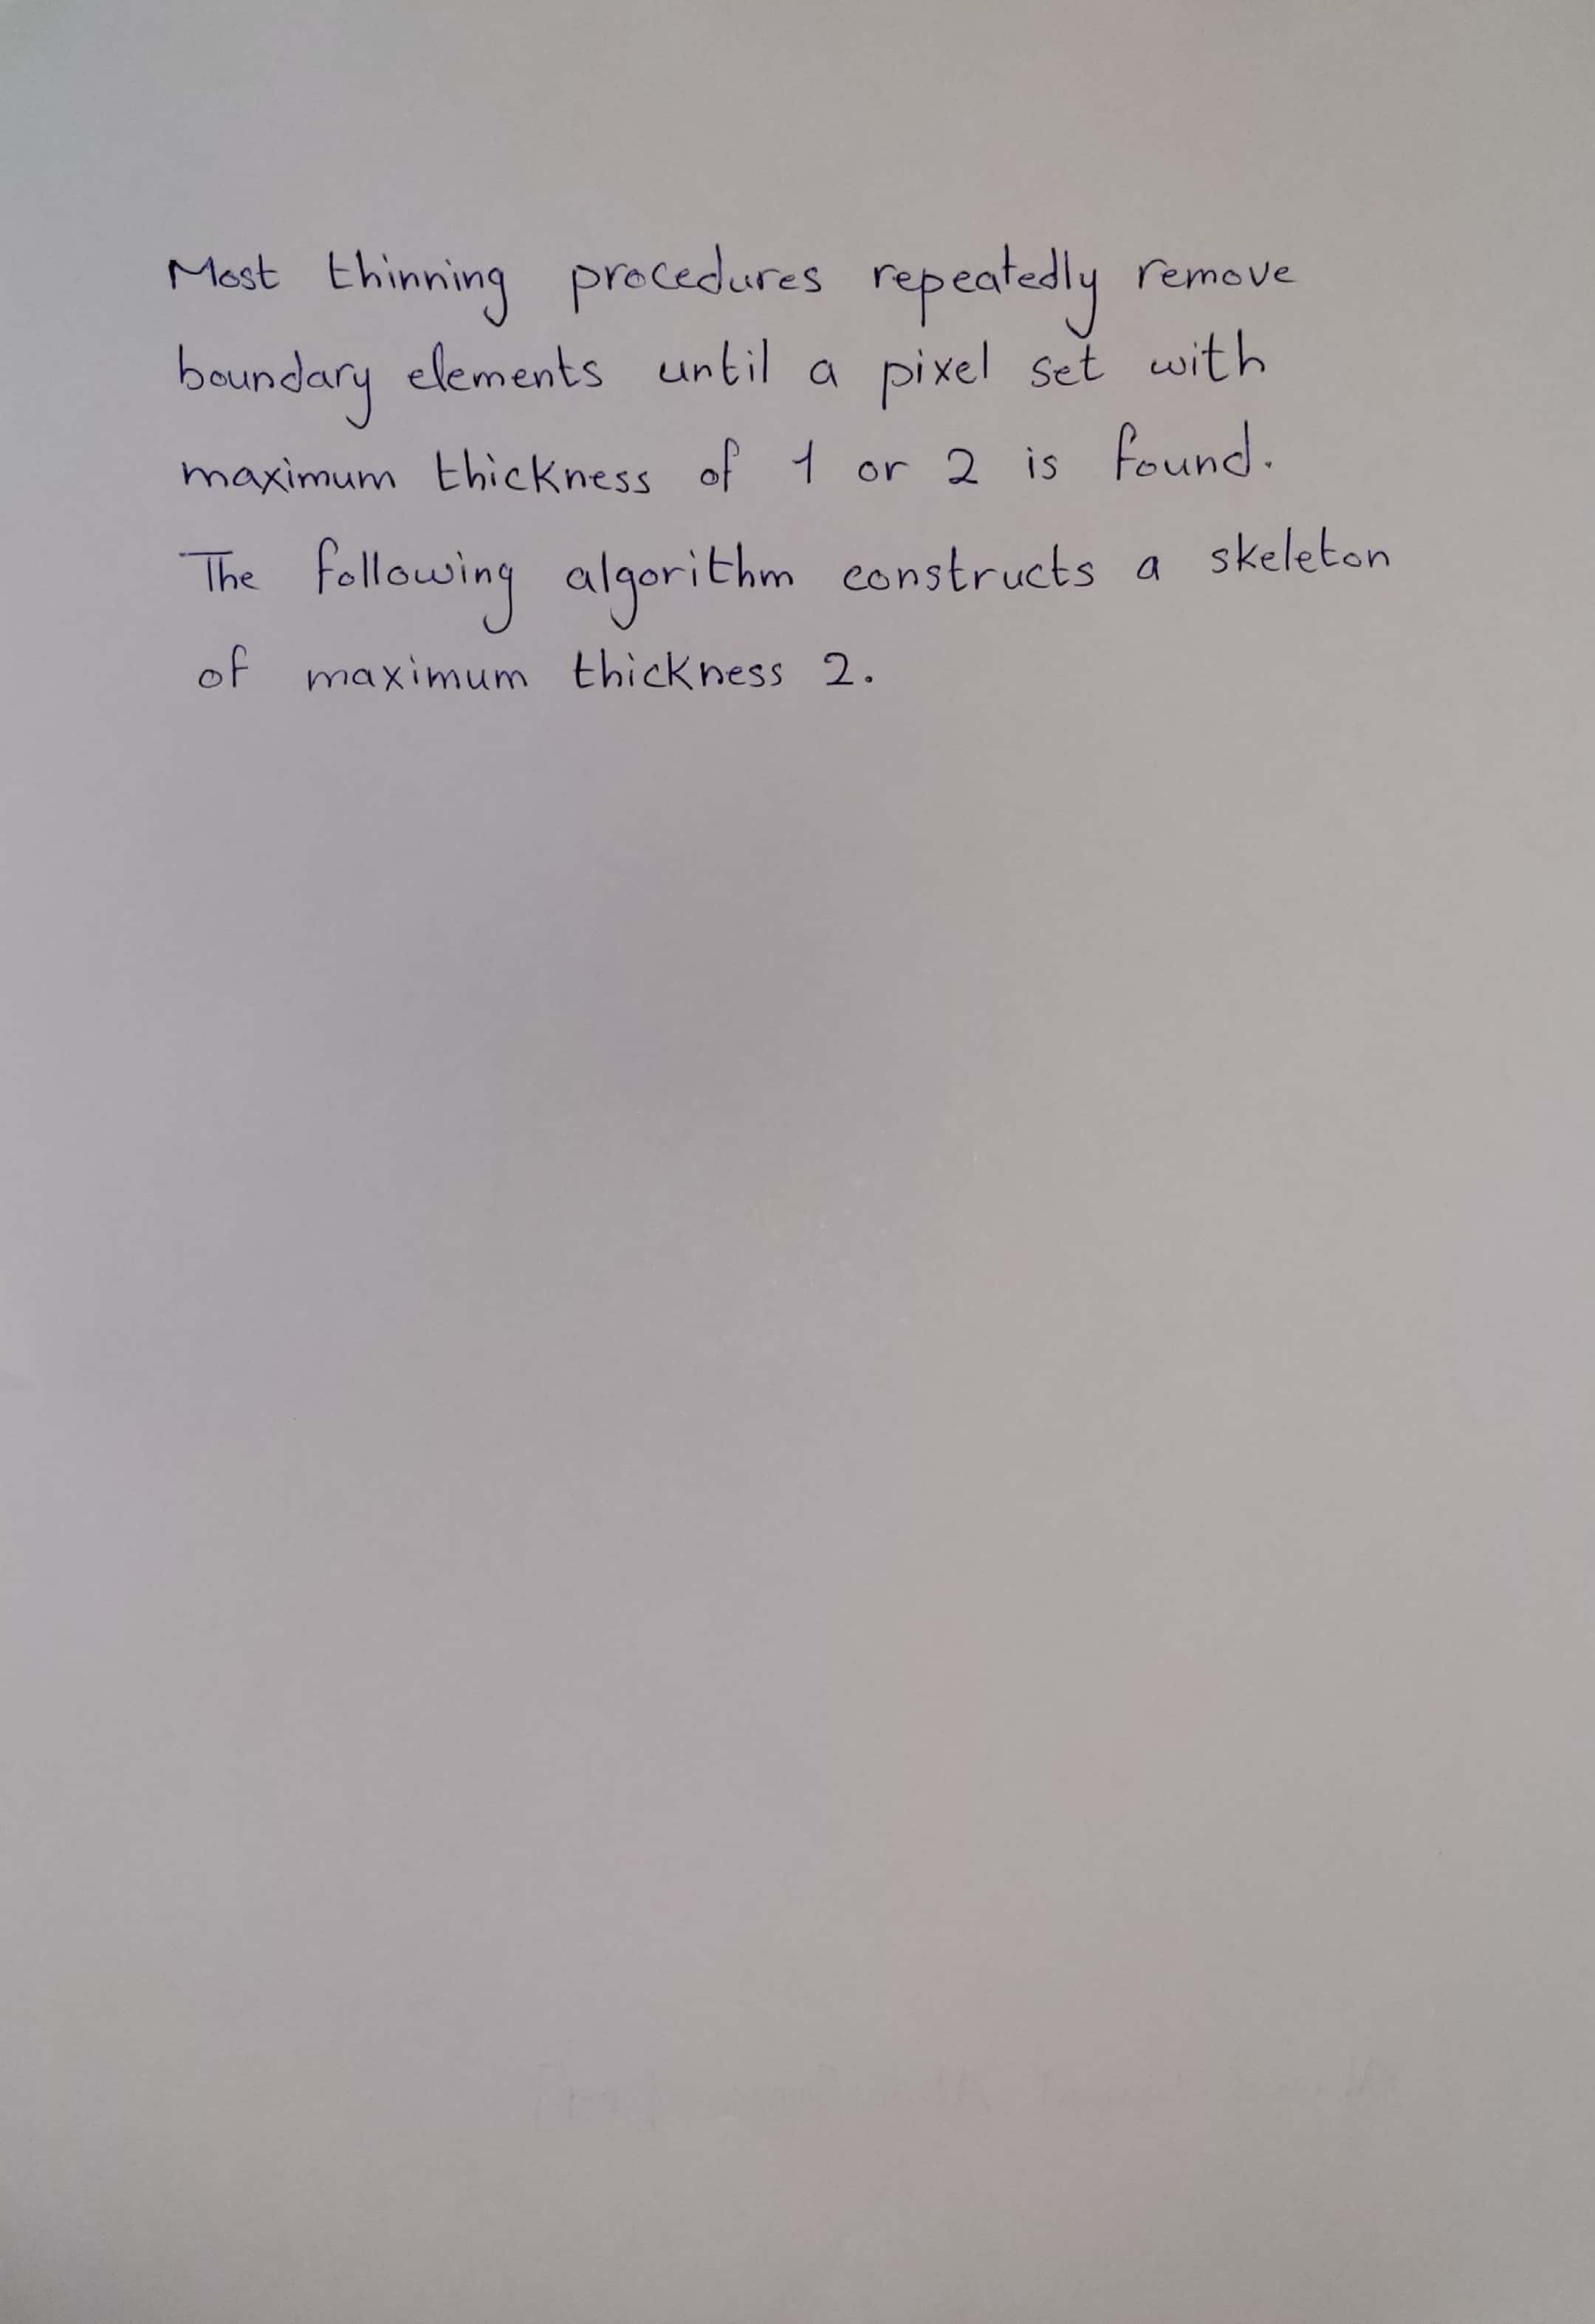 Most thinning procedures repeatedly remove
boundary elements until a pixel set with
maximum thickness of 1 or 2 is found.
The following algorithm constructs a skeleton
of maximum thickness 2.